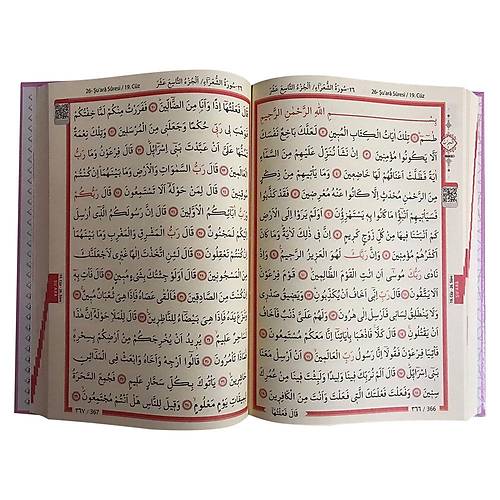 26- Şu'arâ Sûresi / 19. Cüz ٢٦-سُورَةُ الشُّعَرَاءِ/ اَلْجُزْءُ التَّاسِعَ عَشَرَ
بِسْمِ اللهِ الرَّحْمٰنِ الرَّحِيمِ
طٰسٓمٓ تِلْكَ اٰيَاتُ الْكِتَابِ الْمُبِينِ لَعَلَّكَ بَاخِعٌ نَفْسَكَ
اَلَّا يَكُونُوا مُؤْمِنِينَ اِنْ نَشَأْ نُنَزِّلْ عَلَيْهِمْ مِنَ السَّمَاءِ
اٰيَةً فَظَلَّتْ اَعْنَاقُهُمْ لَهَا خَاضِعِينَ وَمَا يَأْتِيهِمْ مِنْ ذِكْرٍ
مِنَ الرَّحْمٰنِ مُحْدَثٍ اِلَّا كَانُوا عَنْهُ مُعْرِضِينَ فَقَدْ كَذَّبُوا
فَسَيَأْتِيهِمْ اَنْبٰٓؤُا مَا كَانُوا بِهِ يَسْتَهْزِؤُنَ اَوَلَمْ يَرَوْا اِلَى الْاَرْضِ
كَمْ اَنْبَتْنَا فِيهَا مِنْ كُلِّ زَوْجٍ كَرِيمٍ اِنَّ فِي ذٰلِكَ لَاٰيَةً وَمَا كَانَ
اَكْثَرُهُمْ مُؤْمِنِينَ وَاِنَّ رَبَّكَ لَهُوَ الْعَزِيزُ الرَّحِيمُ وَاِذْ
نَادٰى رَبُّكَ مُوسٰٓى اَنِ ائْتِ الْقَوْمَ الظَّالِمِينَ قَوْمَ فِرْعَوْنَ
اَلَا يَتَّقُونَ قَالَ رَبِّ اِنِّي اَخَافُ اَنْ يُكَذِّبُونِ وَيَضِيقُ صَدْرِي
وَلَا يَنْطَلِقُ لِسَانِي فَاَرْسِلْ اِلٰى هٰرُونَ وَلَهُمْ عَلَيَّ ذَنْبٌ فَاَخَافُ
اَنْ يَقْتُلُونِ قَالَ كَلَّا فَاذْهَبَا بِاٰيَاتِنَا اِنَّا مَعَكُمْ مُسْتَمِعُونَ
فَأْتِيَا فِرْعَوْنَ فَقُولَا اِنَّا رَسُولُ رَبِّ الْعَالَمِينَ اَنْ اَرْسِلْ مَعَنَا
بَنِي اِسْرَائِلَ قَالَ اَلَمْ نُرَبِّكَ فِينَا وَلِيدًا وَلَبِثْتَ فِينَا مِنْ عُمُرِكَ
سِنِينَ وَفَعَلْتَ فَعْلَتَكَ الَّتِي فَعَلْتَ وَاَنْتَ مِنَ الْكَافِرِينَ
قَالَ فَعَلْتُهَا
٣٦٦ / 366
26- Şu'arâ Sûresi / 19. Cüz ٢٦-سُورَةُ الشُّعَرَاءِ/ اَلْجُزْءُ التَّاسِعَ عَشَرَ
قَالَ فَعَلْتُهَا اِذًا وَاَنَا مِنَ الضَّالِّينَ فَفَرَرْتُ مِنْكُمْ لَمَّا خِفْتُكُمْ
فَوَهَبَ لِي رَبِّي حُكْمًا وَجَعَلَنِي مِنَ الْمُرْسَلِينَ وَتِلْكَ نِعْمَةٌ
تَمُنُّهَا عَلَيَّ اَنْ عَبَّدْتَ بَنِي اِسْرَائِلَ قَالَ فِرْعَوْنُ وَمَا رَبُّ
الْعَالَمِينَ قَالَ رَبُّ السَّمٰوَاتِ وَالْاَرْضِ وَمَا بَيْنَهُمَا اِنْ كُنْتُمْ
مُوقِنِينَ قَالَ لِمَنْ حَوْلَهُ اَلَا تَسْتَمِعُونَ قَالَ رَبُّكُمْ
وَرَبُّ اٰبَائِكُمُ الْاَوَّلِينَ قَالَ اِنَّ رَسُولَكُمُ الَّذِي اُرْسِلَ
اِلَيْكُمْ لَمَجْنُونٌ قَالَ رَبُّ الْمَشْرِقِ وَالْمَغْرِبِ وَمَا بَيْنَهُمَا
اِنْ كُنْتُمْ تَعْقِلُونَ قَالَ لَئِنِ اتَّخَذْتَ اِلٰهًا غَيْرِي لَاَجْعَلَنَّكَ
مِنَ الْمَسْجُونِينَ قَالَ اَوَلَوْ جِئْتُكَ بِشَيْءٍ مُبِينٍ قَالَ فَأْتِ بِهِ
اِنْ كُنْتَ مِنَ الصَّادِقِينَ فَاَلْقٰى عَصَاهُ فَاِذَا هِيَ ثُعْبَانٌ مُبِينٌ
وَنَزَعَ يَدَهُ فَاِذَا هِيَ بَيْضَاءُ لِلنَّاظِرِينَ قَالَ لِلْمَلَاِ حَوْلَهُ اِنَّ هٰذَا
لَسَاحِرٌ عَلِيمٌ يُرِيدُ اَنْ يُخْرِجَكُمْ مِنْ اَرْضِكُمْ بِسِحْرِهِ
فَمَاذَا تَأْمُرُونَ قَالُوا اَرْجِهْ وَاَخَاهُ وَابْعَثْ فِي الْمَدَائِنِ
حَاشِرِينَ يَأْتُوكَ بِكُلِّ سَحَّارٍ عَلِيمٍ فَجُمِعَ السَّحَرَةُ
لِمِيقَاتِ يَوْمٍ مَعْلُومٍ وَقِيلَ لِلنَّاسِ هَلْ اَنْتُمْ مُجْتَمِعُونَ
٣٦٧ / 367